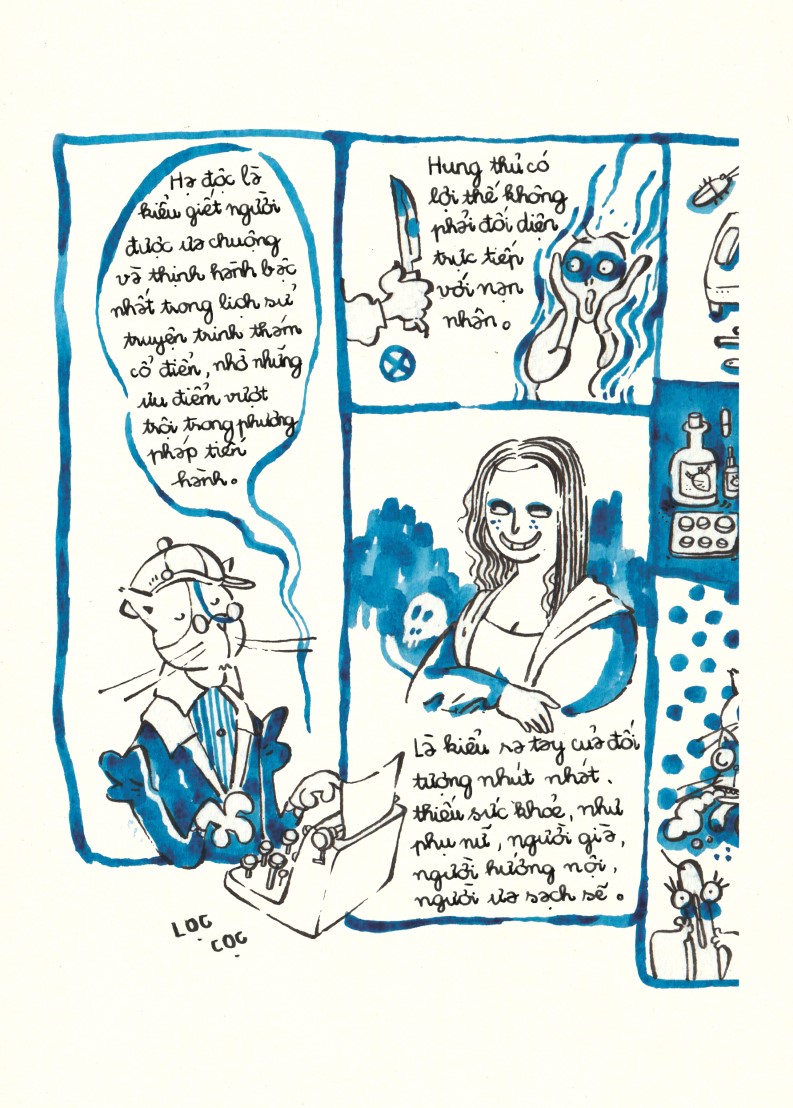 Hạ độc là
kiểu giết người
được ưa chuộng
và thịnh hành bậc
nhất trong lịch sử
truyện trinh thám
cổ điển, nhờ những
ưu điểm vượt
trội trong phương
pháp tiến
hành.
Hung thủ có
lợi thế không
phải đối diện
trực tiếp
với nạn
nhân.
Là kiểu ra tay của đối
tượng nhút nhát,
thiếu sức khoẻ, như
phụ nữ, người già,
người hướng nội,
người ưa sạch sẽ.
LỌC
CỌC